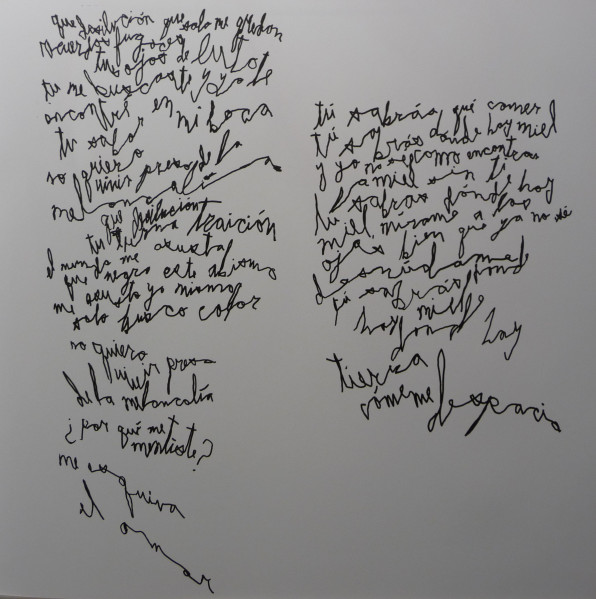 que desilución que solo me quedan
recuerdos fugaces
tus ojos de luto
tu me buscaste y yo te
encontré en mi boca
tu sabor
no quiero
vivir preso de la
melancolía
que desilución
tu una traición
el mundo me asusta
que negro este abismo
me asusto yo mismo
solo busco calor
no quiero
vivir preso
de la melancolía
¿por qué me
mentiste?
me esquiva
el amor
tú sabrás qué comer
tú sabrás dónde hay miel
y yo no se como encontrar
la miel sin ti
tu sabras dónde hay
miel mirame a los
ojos bien que ya no sé
desnúdame
tú sabrás dond
hay mielle
dond hay
tierra
cómeme despacio